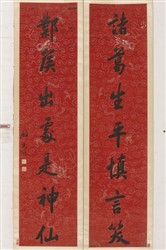 諸葛生平慎言笑
鄴侯出處是神仙